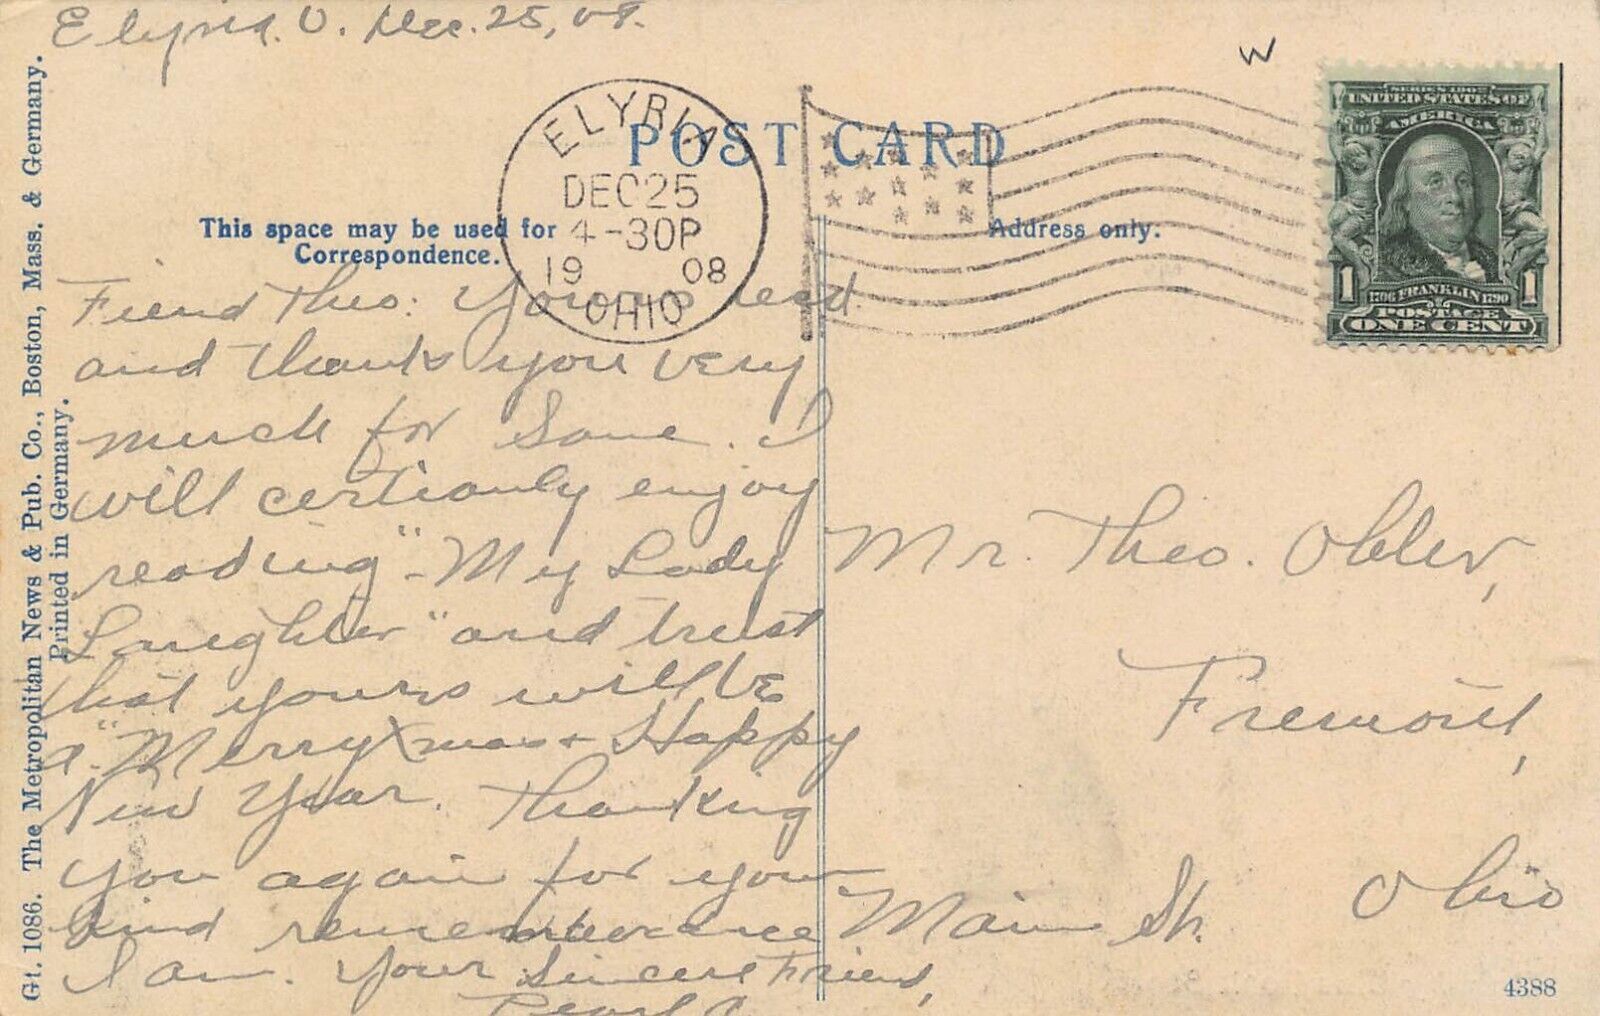 Elyria. O. Dec. 25, 08.
W
POST CARD
ELYRIA
DEC 25
4-30P
19 08
OHIO
SERIES 1902
UNITED STATES OF
AMERICA
1 1706 FRANKLIN 1790 1
POSTAGE
ONE CENT
This space may be used for
Correspondence.
Address only.
Fiend Theo: Yours rec'd
and thanks you very
much for Same. I
will certianly enjoy
reading "My Lady
Laughter" and trust
that yours will be
a "Merry Xmas + Happy
New Year. Thanking
you again for your
kind rememberance
I am. Your Sincere Friend,
Pearl
Mr. Theo. Obler,
Fremont,
Ohio
Main St.
Gt. 1086. The Metropolitan News & Pub. Co., Boston, Mass. & Germany.
Printed in Germany.
4388